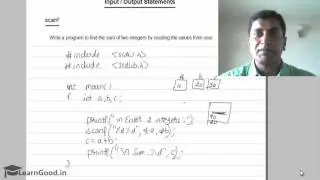 Input / Output Statements
scanf
Write a program to find the sum of two integers by reading the values from user.
#include <stdio.h>
#include <stdlib.h>
int main()
{ int a,b,c;
a b
10 20
printf("\n Enter 2 integers:");
scanf("%d%d", &a, &b);
c = a+b;
printf("\n Sum: %d", c);
}
LearnGood.in